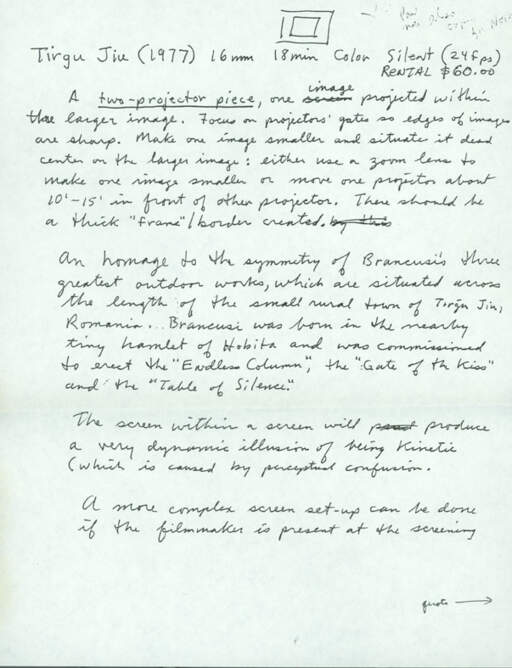 Tirgu Jiu (1977) 16mm 18min Color Silent (24fps)
RENTAL $60.00
A two-projector piece, one screen image projected within
the larger image. Focus on projectors' gates so edges of images
are sharp. Make one image smaller and situate it dead
center on the larger image: either use a zoom lens to
make one image smaller or move one projector about
10'-15' in front of other projector. There should be
a thick "frame"/border created. by this
An homage to the symmetry of Brancusi's three
greatest outdoor works, which are situated across
the length of the small rural town of Tirgu Jiu,
Romania. Brancusi was born in the nearby
tiny hamlet of Hobita and was commissioned
to erect the "Endless Column", the "Gate of the Kiss"
and the "Table of Silence."
The screen within a screen will produce
a very dynamic illusion of being Kinetic
(which is caused by perceptual confusion.
A more complex screen set-up can be done
if the filmmaker is present at the screening
quote →